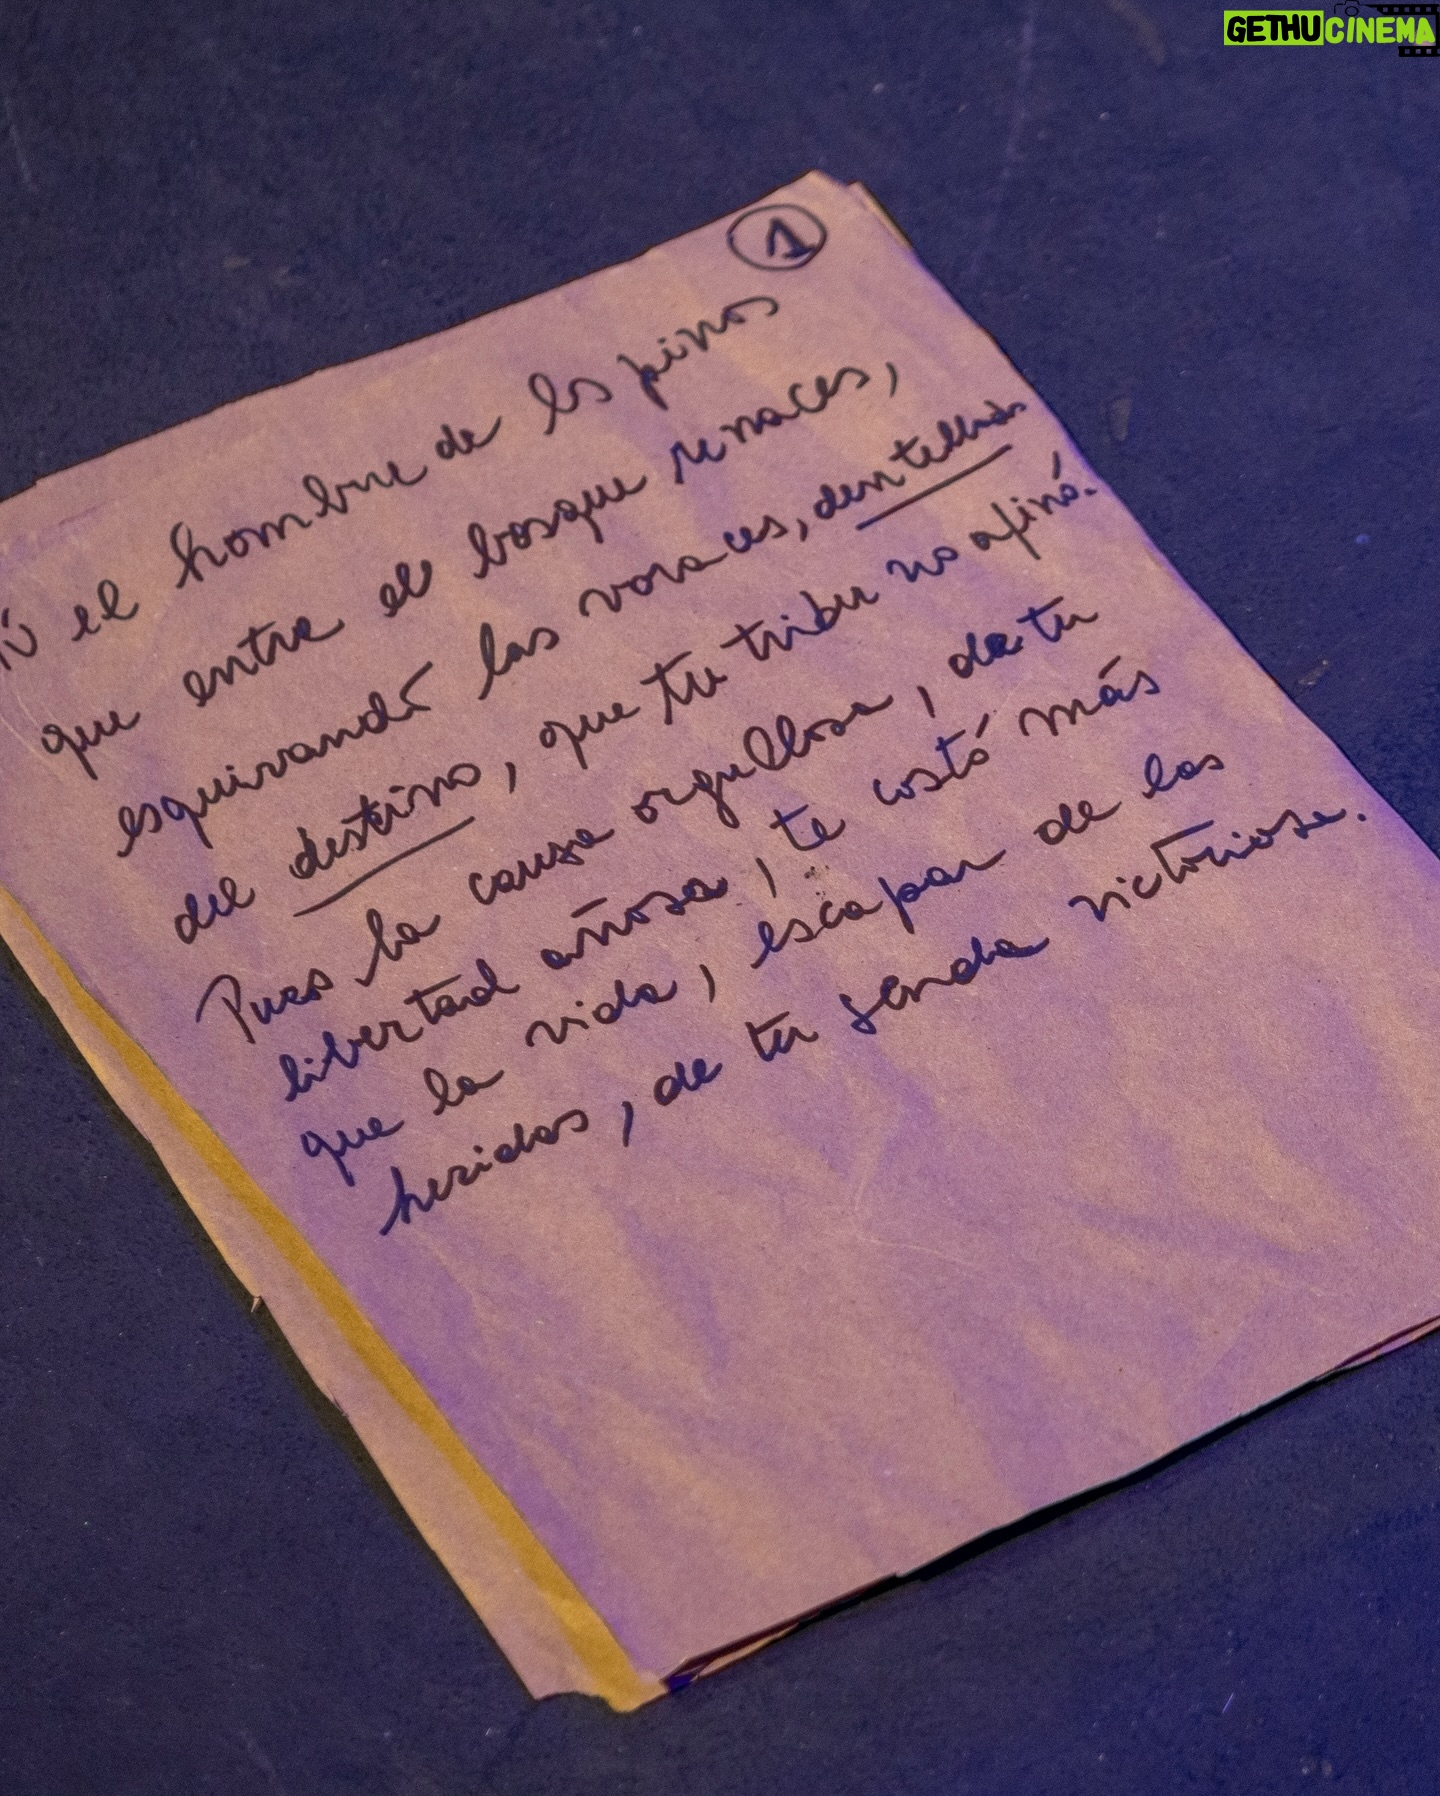 GETHUCINEMA
1
Tú el hombre de los pinos
que entre el bosque renaces,
esquivando las voraces, dentelladas
del destino, que tu tribu no afinó.
Pues la causa orgullosa, da tu
libertad añosa, te costó más
que la vida, escapar de las
heridas, de tu senda victoriosa.